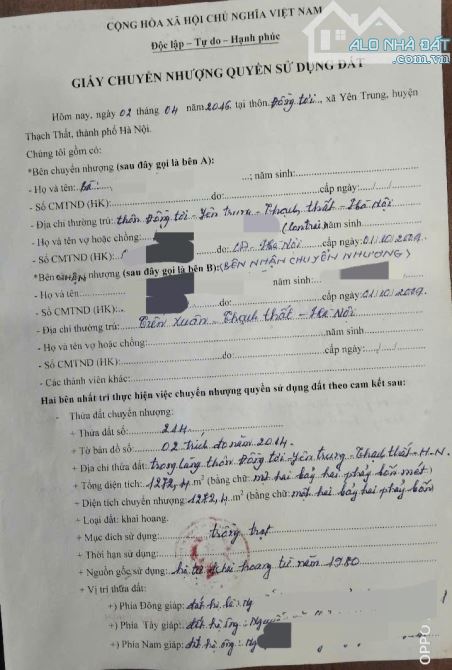 CỘNG HÒA XÃ HỘI CHỦ NGHĨA VIỆT NAM
Độc lập – Tự do – Hạnh phúc
ALO NHÀ ĐẤT
GIẤY CHUYỂN NHƯỢNG QUYỀN SỬ DỤNG ĐẤT
Hôm nay, ngày 02 tháng 04 năm 2016 tại thôn Đồng tơi, xã Yên Trung, huyện
Thạch Thất, thành phố Hà Nội.
Chúng tôi gồm có:
*Bên chuyển nhượng (sau đây gọi là bên A):
- Họ và tên: Bà: ; năm sinh:
- Số CMTND (HK): do: cấp ngày / /
- Địa chỉ thường trú: thôn Đồng tơi - Yên trung - Thạch thất - Hà Nội
- Họ và tên vợ hoặc chồng: (Con trai) năm sinh
- Số CMTND (HK): do: CA - Hà Nội cấp ngày 01/10/2009
*Bên NHẬN nhượng (sau đây gọi là bên B): (BÊN NHẬN CHUYỂN NHƯỢNG)
- Họ và tên: năm sinh:
- Số CMTND (HK): do: cấp ngày 01/10/2009
- Địa chỉ thường trú: Tiến Xuân - Thạch thất - Hà Nội
- Họ và tên vợ hoặc chồng: năm sinh
- Số CMTND (HK): do: cấp ngày / /
- Các thành viên khác:
Hai bên nhất trí thực hiện việc chuyển nhượng quyền sử dụng đất theo cam kết sau:
- Thửa đất chuyển nhượng:
+ Thửa đất số: 214
+ Tờ bản đồ số: 02 trích đo năm 2014.
+ Địa chỉ thửa đất: trong làng thôn Đồng tơi - Yên trung - Thạch thất - H-N.
+ Tổng diện tích: 1272,4 m² (bằng chữ: một hai bảy hai phảy bốn mét)
+ Diện tích chuyển nhượng: 1272,4 m² (bằng chữ: một hai bảy hai phảy bốn
+ Loại đất: khai hoang.
+ Mục đích sử dụng: trồng trọt
+ Thời hạn sử dụng:
+ Nguồn gốc sử dụng: hộ tự khai hoang từ năm 1980
+ Vị trí thửa đất:
+) Phía Đông giáp: đất hộ
+) Phía Tây giáp: đất hộ ông:
+) Phía Nam giáp: đất hộ ông:
OPPO